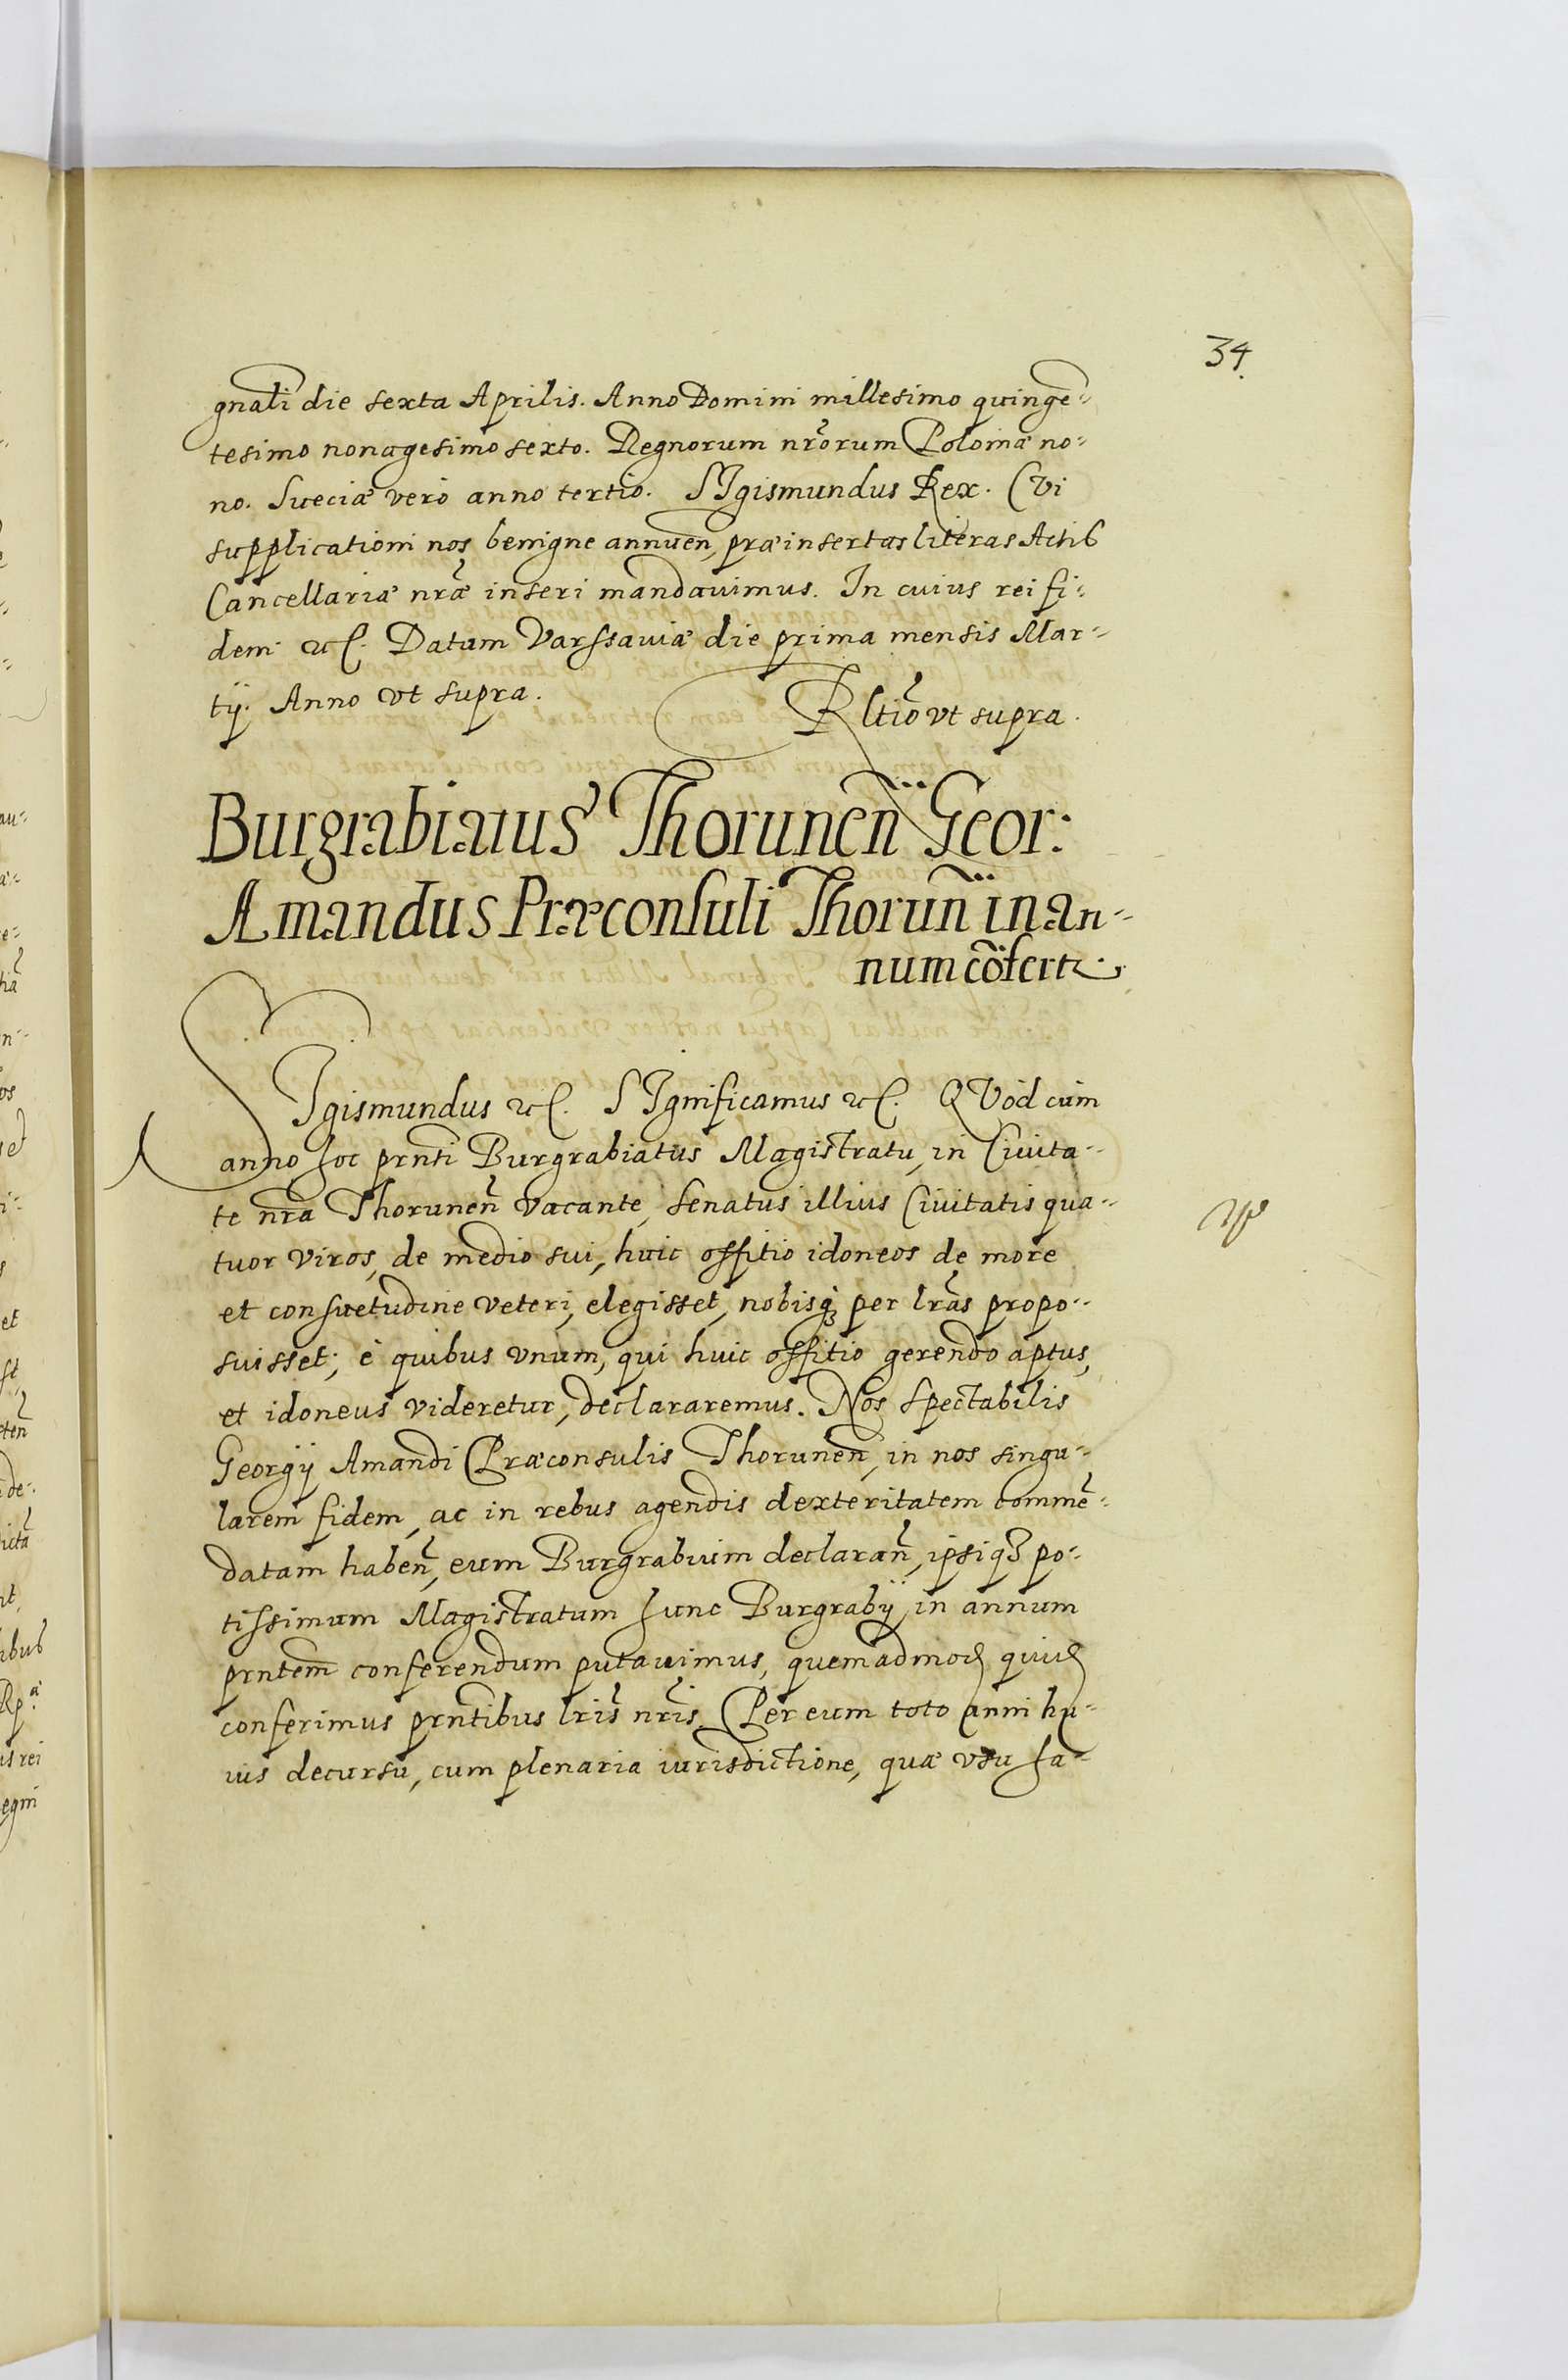 34.
gnali die sexta Aprilis. Anno Domini millesimo quingẽ-
tesimo nonagesimo sexto. Regnorum nr̃orum Poloniæ no-
no. Sueciæ verò anno tertio. SIgismundus Rex. CVi
supplicationi nos benigne annuen̄, præinsertas literas Actib
Cancellariæ nr̃æ inseri mandauimus. In cuius rei fi-
dem etc. Datum Varssauiæ die prima mensis Mar-
tij. Anno vt supra.
Rltiõ vt supra.
Burgrabiatus Thorunen̄ Geor:
Amandus Præconsuli Thorun̄ in an-
num cõfertr.
SIgismundus etc. SIgnificamus etc. QVòd cùm
anno hoc prn̄ti Burgrabiatus Magistratu, in Ciuita-
te nr̄a Thorunen̄ vacante, Senatus illius Ciuitatis qua-
tuor viros, de medio sui, huic offitio idoneos de more
et consuetudine veteri, elegisset, nobisq; per lr̃as propo-
suisset; è quibus vnum, qui huic offitio gerendo aptus,
et idoneus videretur, declararemus. Nos Spectabilis
Georgij Amandi Præconsulis Thorunen̄, in nos singu-
larem fidem, ac in rebus agendis dexteritatem commẽ-
datam haben̄, eum Burgrabium declaran̄, ipsiq; po-
tissimum Magistratum hunc Burgrabij in annum
prn̄tem conferendum putauimus, quemadmod quid
conferimus prn̄tibus lr̃is nr̃is. Per eum toto anni hu-
ius decursu, cum plenaria iurisdictione, quæ vsu ha-